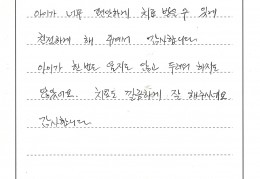 아이가 너무 편안하게 치료 받을 수 있게
친절하게 해 주셔서 감사합니다.
아이가 한번도 울지도 않고 두려워 하지도
않았어요. 치료도 깔끔하게 잘 해주시네요
감사합니다